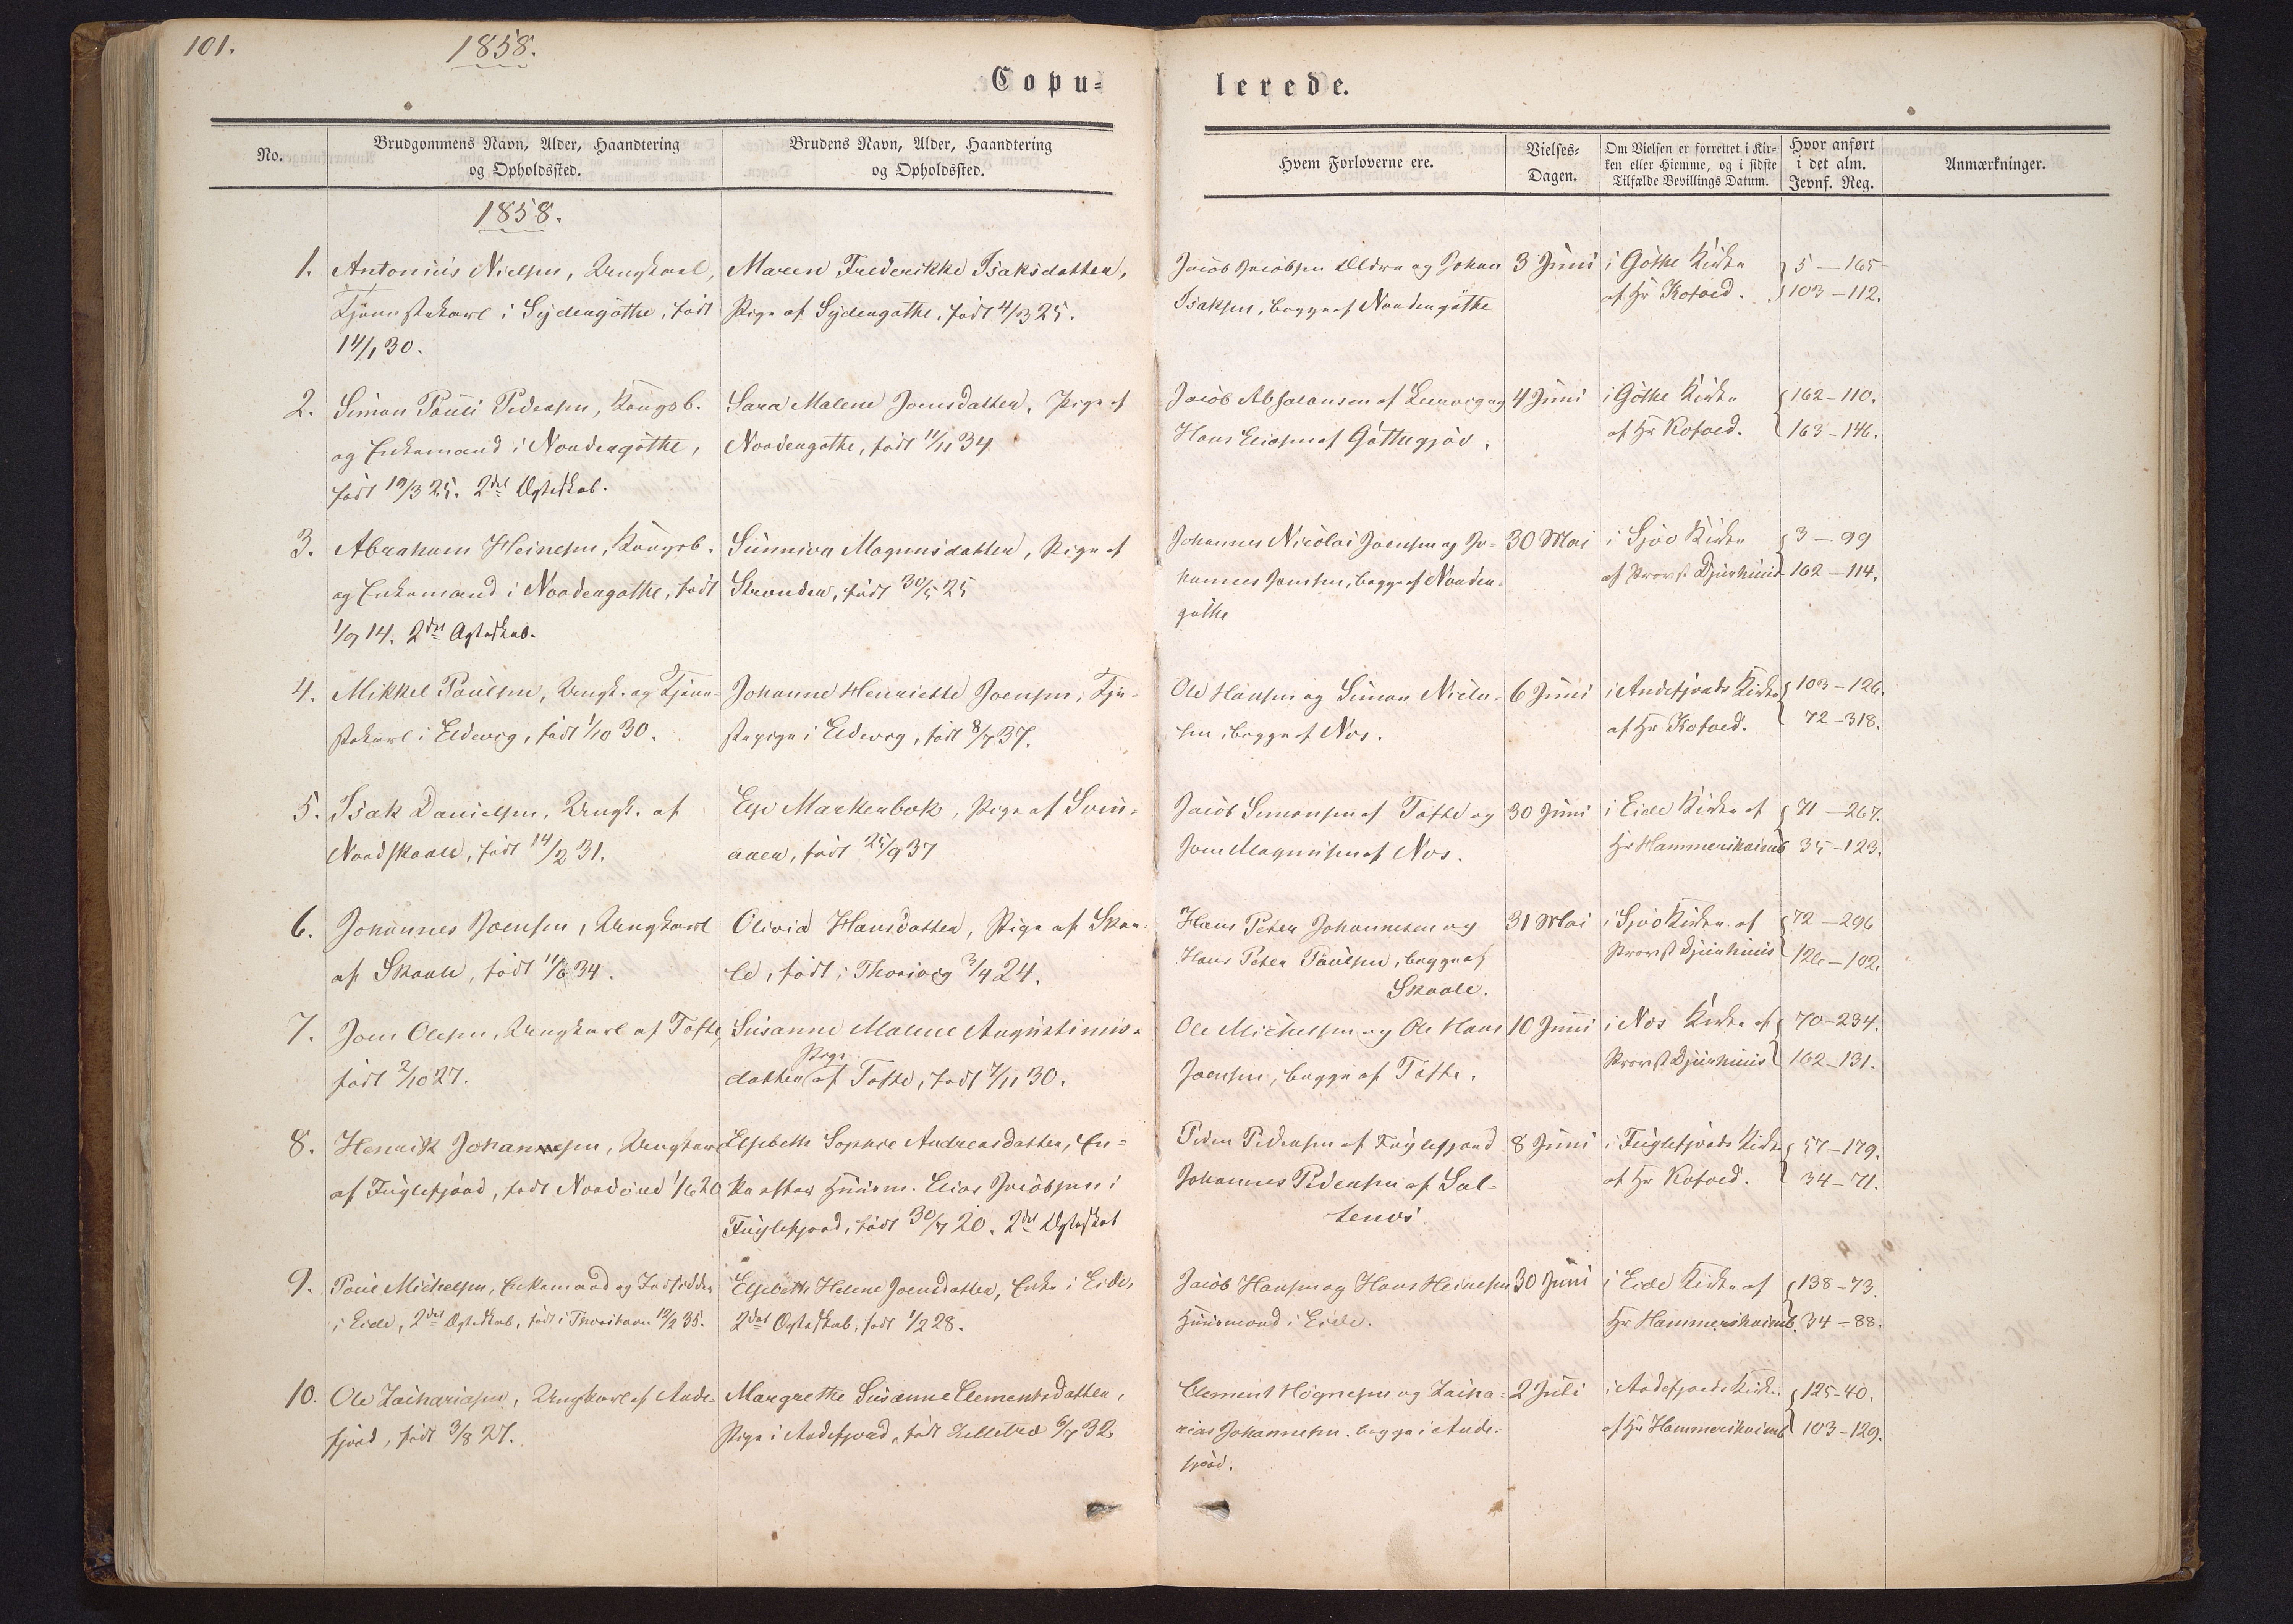 101.
1858.
Copu=
lerede.
No.
Brudgommens Navn, Alder, Haandtering
og Opholdssted.
Brudens Navn, Alder, Haandtering
og Opholdssted.
Hvem Forloverne ere.
Vielses-
Dagen.
Om Vielsen er forrettet i Kir-
ken eller Hiemme, og i sidste
Tilfælde Bevillings Datum.
Hvor anført
i det alm.
Jevnf. Reg.
Anmærkninger.
1858.
1. Antonius Nielsen, Ungkarl,
Tjenestekarl i Sydengøthe, født
14/1 30.
Maren Frederikke Isaksdatter,
Pige af Sydengøthe, født 4/3 25.
Jacob Jacobsen Ældre og Johan
Isaksen, begge af Nordengøthe
3 Juni
i Gøthe Kirke
af Hr Kofoed.
5 – 165
103 – 112.
2. Simon Pauli Pedersen, Kongsb.
og Enkemand i Nordengøthe,
født 19/3 25. 2det Ægteskab.
Sara Malene Joensdatter, Pige af
Nordengøthe, født 11/11 34
Jacob Absalonsen af Leervig og
Hans Eliasen af Gøttugjov.
4 Juni
i Gøthe Kirke
af Hr Kofoed.
162 – 110.
163 – 146.
3. Abraham Heinesen, Kongsb.
og Enkemand i Nordengøthe, født
1/9 14. 2det Ægteskab.
Sunniva Magnusdatter, Pige af
Strender, født 30/5 25
Johannes Nicolai Joensen og Jo-
hannes Joensen, begge af Norden-
gøthe
30 Mai
i Sjov Kirke
af Provst Djurhuus
3 – 99
162 – 114.
4. Mikkel Poulsen, Ungk. og Tjene-
stekarl i Eldevig, født 1/10 30.
Johanne Henriette Joensen, Tje-
stepige i Eldevig, født 8/7 37.
Ole Hansen og Simon Nicla-
sen, begge af Nes.
6 Juni
i Andefjords Kirke
af Hr Kofoed.
103 – 126.
72 – 318.
5. Isak Danielsen, Ungk. af
Nordskaale, født 14/2 31.
Else Markenbok, Pige af Svin-
aaer, født 25/9 37
Jacob Simonsen af Tofte og
Joen Magnusen af Nes.
30 Juni
i Eide Kirke af
Hr Hammershaimb
71 – 267.
35 – 123.
6. Johannes Joensen, Ungkarl
af Skaale, født 11/6 34.
Olivia Hansdatter, Pige af Skaa-
le, født i Thorsvig 3/4 24.
Hans Peter Johannesen og
Hans Peter Poulsen, begge af
Skaale.
31 Mai
i Sjov Kirke af
Provst Djurhuus
72 – 296
126 – 102.
7. Joen Olesen, Ungkarl af Tofte,
født 2/10 27.
Susanne Malene Augustinus-
Pige
datter af Tofte, født 7/11 30.
Ole Michelsen og Ole Hans
Joensen, begge af Tofte.
10 Juni
i Nes Kirke af
Provst Djurhuus
70 – 234.
162 – 131.
8. Henrik Johannesen, Ungkarl
af Fuglefjord, født Nordøerne 1/6 20
Elsebeth Sophie Andreasdatter, En-
ke efter Huusm. Elias Jacobsen i
Fuglefjord, født 30/7 20. 2det Ægteskab
Peder Pedersen af Fuglefjord
Johannes Pedersen af Sal-
tenes.
8 Juni
i Fuglefjords Kirke
af Hr Kofoed.
57 – 179.
34 – 71.
9. Poul Michelsen, Enkemand og Indsidder
i Eide, 2det Ægteskab, født i Thorshavn 19/2 35.
Elsebeth Helene Joensdatter, Enke i Eide,
2det Ægteskab, født 1/2 28.
Jacob Hansen og Hans Heinesen
Huusmænd i Eide.
30 Juni
i Eide Kirke af
Hr Hammershaimb
138 – 73.
34 – 88.
10. Ole Zachariasen, Ungkarl af Ande-
fjord, født 3/8 27.
Margrethe Susanne Clementsdatter,
Pige i Andefjord, født Zelletræ 6/7 32
Clement Høgnesen og Zacha-
rias Johannesen, begge i Ande-
fjord.
2 Juli
i Andefjords Kirke
af Hr Hammershaimb
125 – 40.
103 – 129.